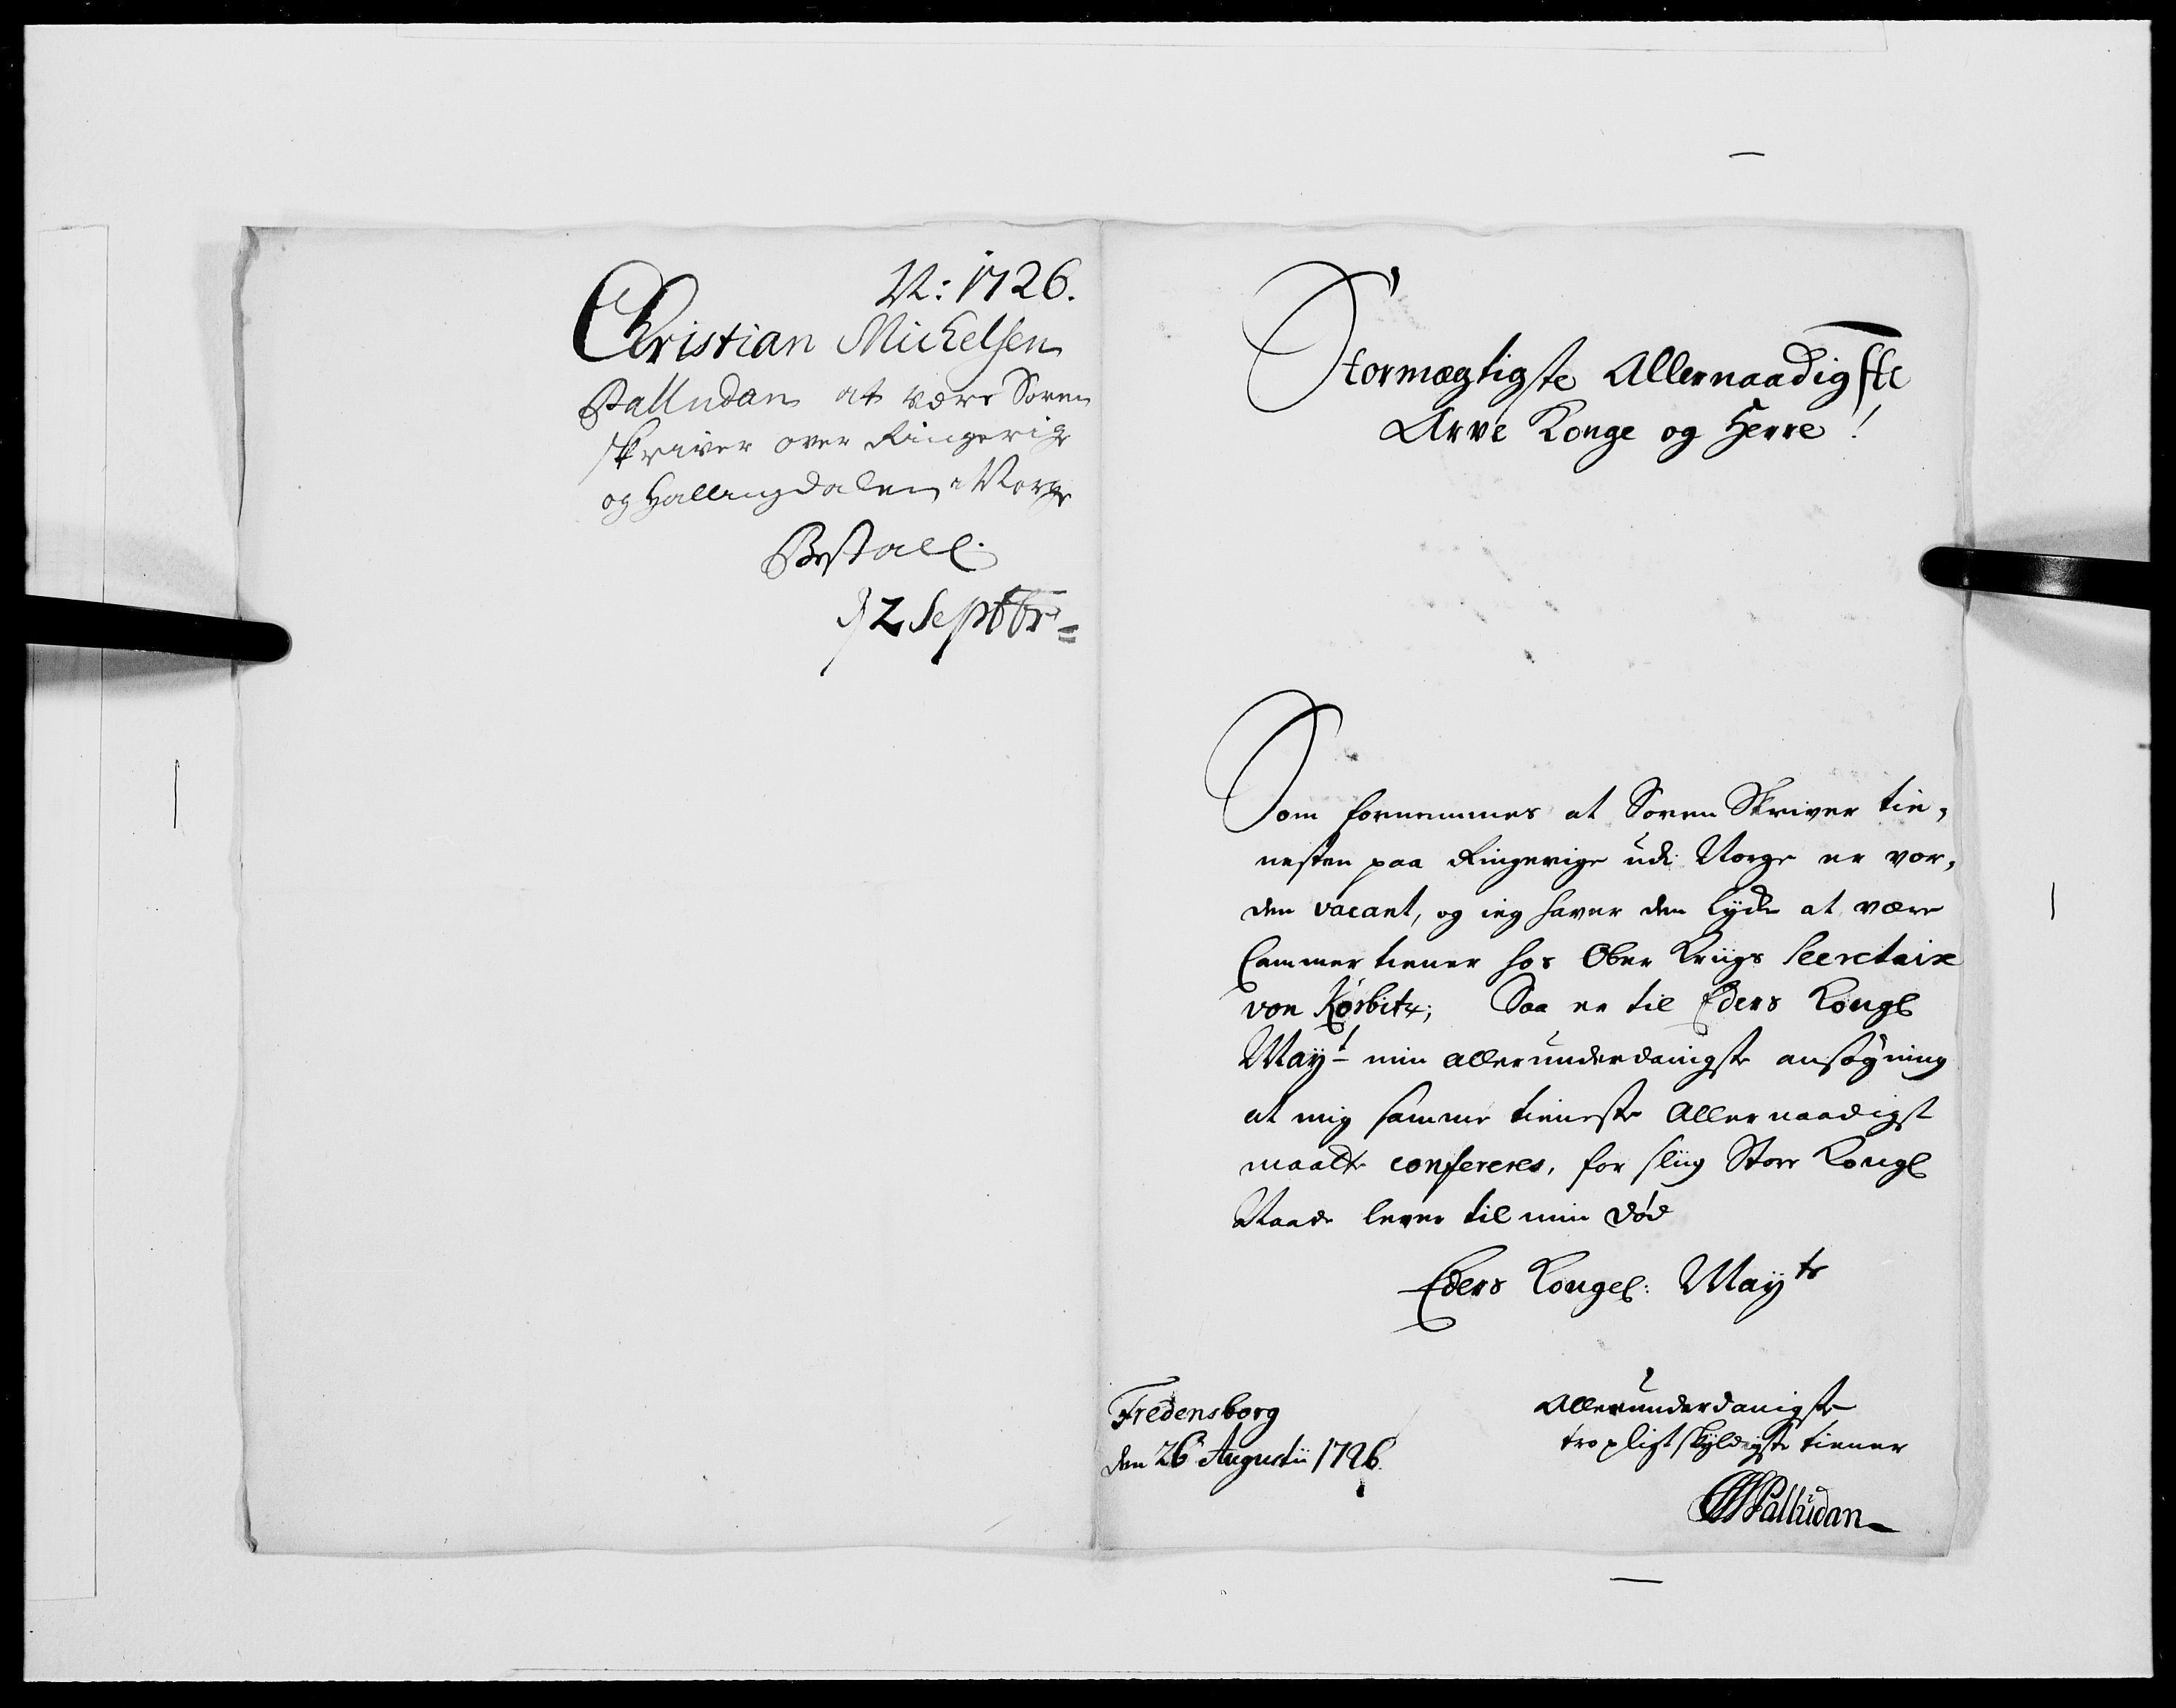 N: 1726.
Christian Michelsen
Palludan at være Soren
skriver over Ringerige
og Hallingdalen i Norge
Bestall.
d 2 Septbr=
Stormægtigste Allernaadigste
Arve Konge og Herre!
Som fornemmes at Soren Skriver tie,
nesten paa Ringerige udi Norge er vor,
den vacant, og ieg haver den lyche at være
Cammertiener hos Ober Kriigs Secretaire
von Kørbitz; Saa er til Eders Kongl
Mayt min allerunderdanigste ansøgning
at mig samme tieneste Allernaadigst
maatte confereres, for sliig Stor Kongl
Naade lever til min død
Eders Kongel: Mayts
Fredensborg
den 26 Augustii 1726.
Allerunderdanigste
tropligtskyldigste tiener
CMPalludan